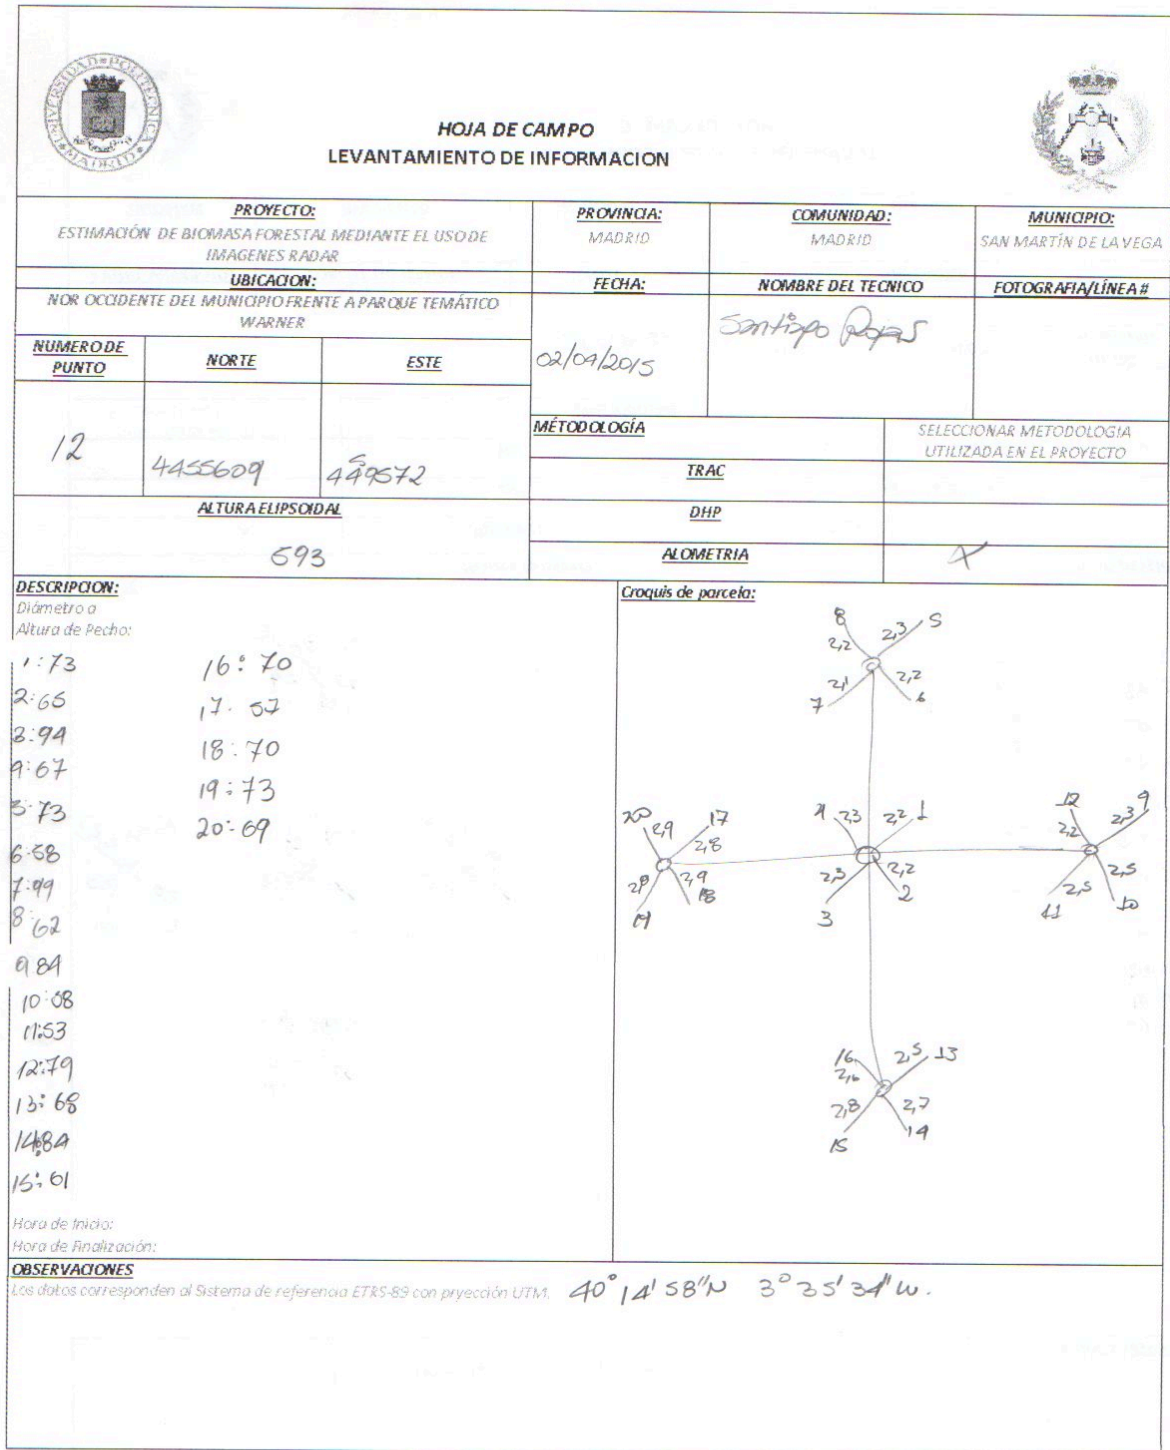 UNIVERSIDAD POLITECNICA
MADRID
HOJA DE CAMPO
LEVANTAMIENTO DE INFORMACION
PROYECTO:
ESTIMACIÓN DE BIOMASA FORESTAL MEDIANTE EL USO DE
IMAGENES RADAR
PROVINCIA:
MADRID
COMUNIDAD:
MADRID
MUNICIPIO:
SAN MARTÍN DE LA VEGA
UBICACION:
NOR OCCIDENTE DEL MUNICIPIO FRENTE A PARQUE TEMÁTICO
WARNER
FECHA:
02/04/2015
NOMBRE DEL TECNICO
Santiago Rojas
FOTOGRAFIA/LÍNEA #
NUMERO DE
PUNTO
NORTE
ESTE
12
4455609
449572
MÉTODOLOGÍA
SELECCIONAR METODOLOGIA
UTILIZADA EN EL PROYECTO
TRAC
DHP
ALOMETRIA
X
ALTURA ELIPSOIDAL
593
DESCRIPCION:
Diámetro a
Altura de Pecho:
1:73
2:65
3:94
4:67
5:73
6:58
7:49
8:62
9 84
10:
11:53
12:79
13:68
14:84
15:61
16:70
17: 57
18:70
19:73
20:69
Hora de Inicio:
Hora de Finalización:
Croquis de parcela:
8 2,3 5
2,2
2,1 2,2
7 6
20 2,9 17
2,8
2,9 2,9
19 18
4 2,3 2,2 1
2,3 2,2
3 2
12 2,3 9
2,2
2,5 2,5
11 10
16 2,5 13
2,6
2,8 2,7
15 14
OBSERVACIONES
Los datos corresponden al Sistema de referencia ETRS-89 con pryección UTM. 40° 14' 58"N 3° 35' 34" W.